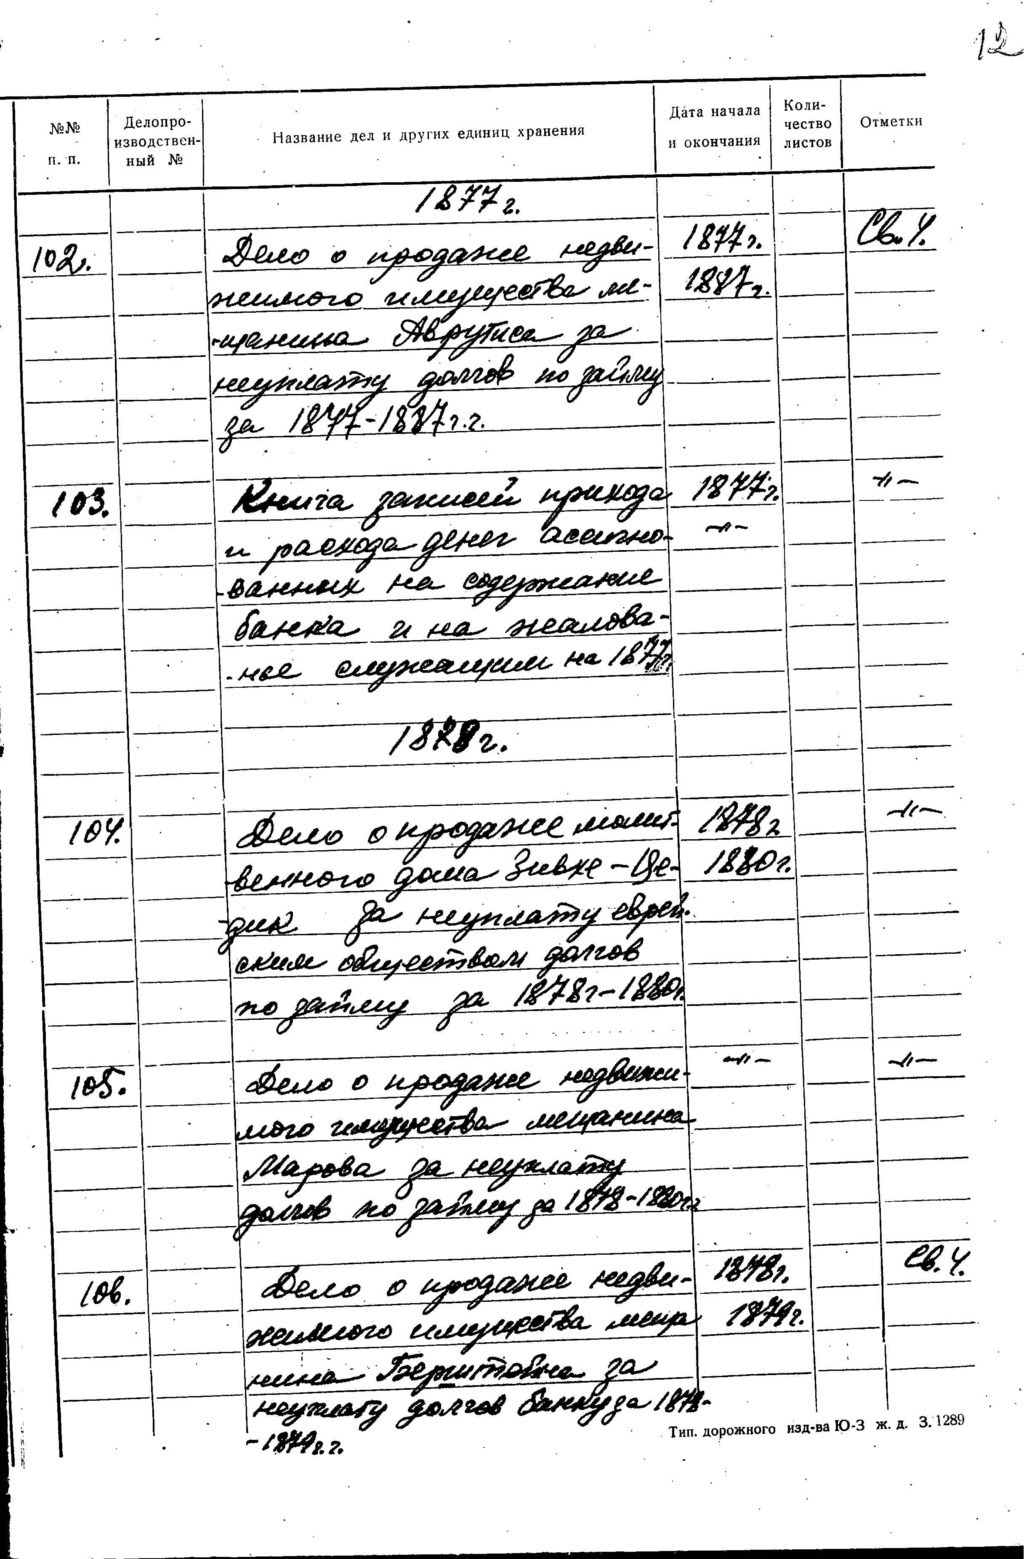 12
№№ п. п.
Делопро-
изводствен-
ный №
Название дел и других единиц хранения
Дата начала
и окончания
Коли-
чество
листов
Отметки
1877г.
102. Дело о продаже недви- 1877г. Св. 4.
жимого имущества ме- 1887г.
щанина Аврутиса за
неуплату долгов по займу
за 1877-1887г.г.
103. Книга записей прихода 1877г. -//-
и расхода денег ассигно- -//-
ванных на содержание
банка и на жалова-
нье служащим на 1877г.
1878г.
104. Дело о продаже молит- 1878г -//-
венного дома Зивхе-Це- 1880г.
дик за неуплату еврей-
ским обществом долгов
по займу за 1878г-1880г.
105. Дело о продаже недвижи- -//- -//-
мого имущества мещанина
Марова за неуплату
долгов по займу за 1878-1880гг
106. Дело о продаже недви- 1878г. Св. 4.
жимого имущества меща 1879г.
нина Берштейна за
неуплату долгов банку за 1878-
-1879г.г.
Тип. дорожного изд-ва Ю-З ж. д. З. 1289